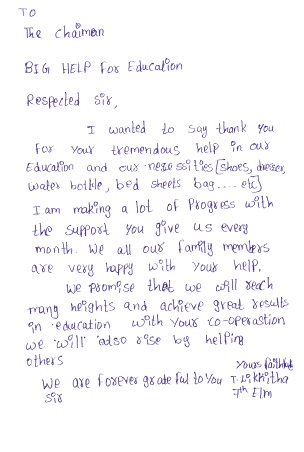 TO
The chaiman
BIG HELP For Education
Respected Sir,
I wanted to say thank you
for your tremendous help in our
Education and our nessessities [shoes, dresses,
water bottle, bed sheets bag.... etc]
I am making a lot of Progress with
the support you give us every
month. We all our family members
are very happy with your help.
We promise that we will reach
many heights and achieve great results
in education with your co-operation
we will also rise by helping
others
Yours faithful
We are forever grateful to you T. Likhitha
Sir 7th E/m